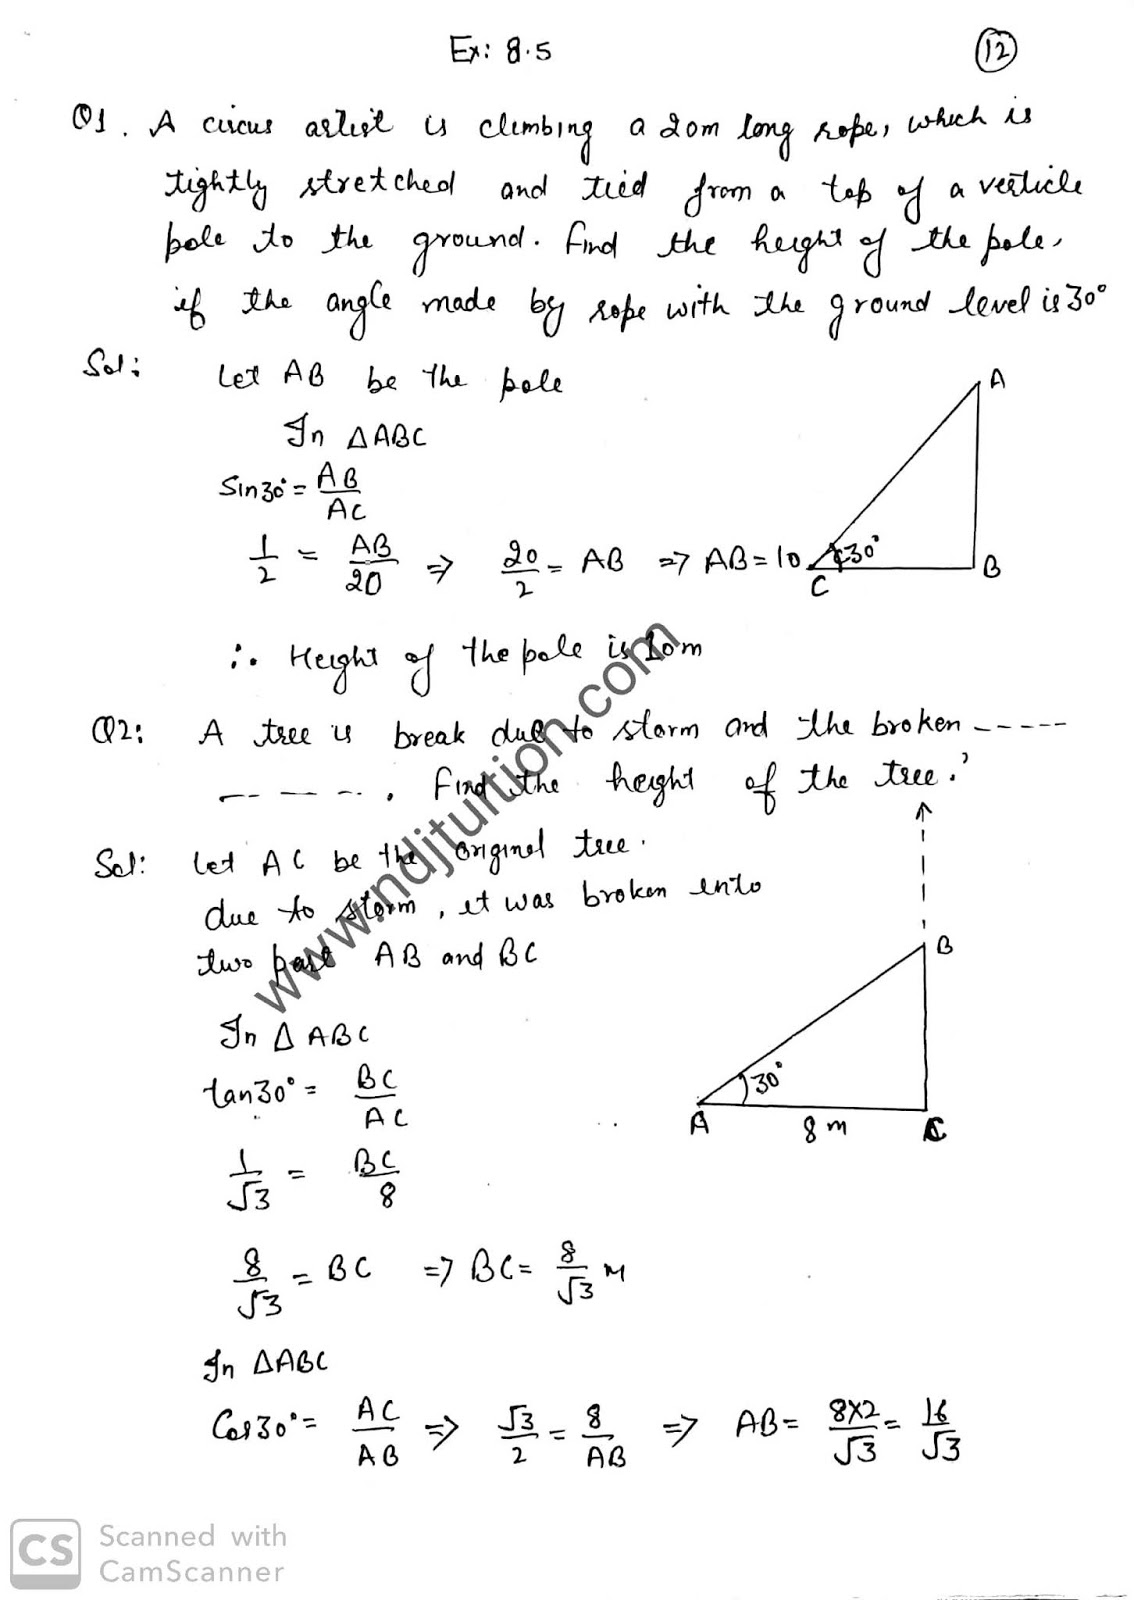 Ex: 8.5
12
Q1. A circus artist is climbing a 20m long rope, which is
tightly stretched and tied from a top of a verticle
pole to the ground. Find the height of the pole,
if the angle made by rope with the ground level is 30°
Sol: Let AB be the pole
In △ABC
Sin30° = AB/AC
1/2 = AB/20 => 20/2 = AB => AB = 10
A
30°
B
C
∴ Height of the pole is 10m
Q2: A tree is break due to storm and the broken -----
-- -- --. Find the height of the tree.
Sol: Let AC be the original tree.
due to storm, it was broken into
two part AB and BC
In △ABC
tan30° = BC/AC
1/√3 = BC/8
B
30°
A
8 m
C
8/√3 = BC => BC = 8/√3 m
In △ABC
Cos30° = AC/AB => √3/2 = 8/AB => AB = 8×2/√3 = 16/√3
www.ndjtuition.com
CS
Scanned with
CamScanner